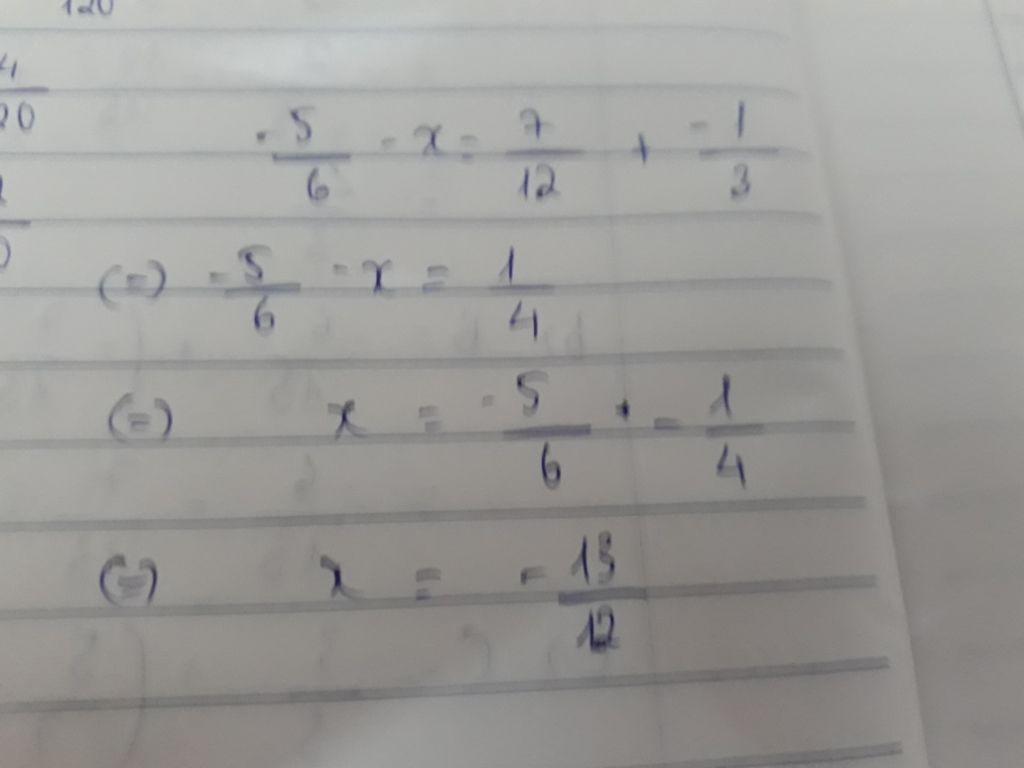 120
4/20
-5/6 - x = 7/12 + -1/3
(=) -5/6 - x = 1/4
(=) x = -5/6 - 1/4
(=) x = -13/12